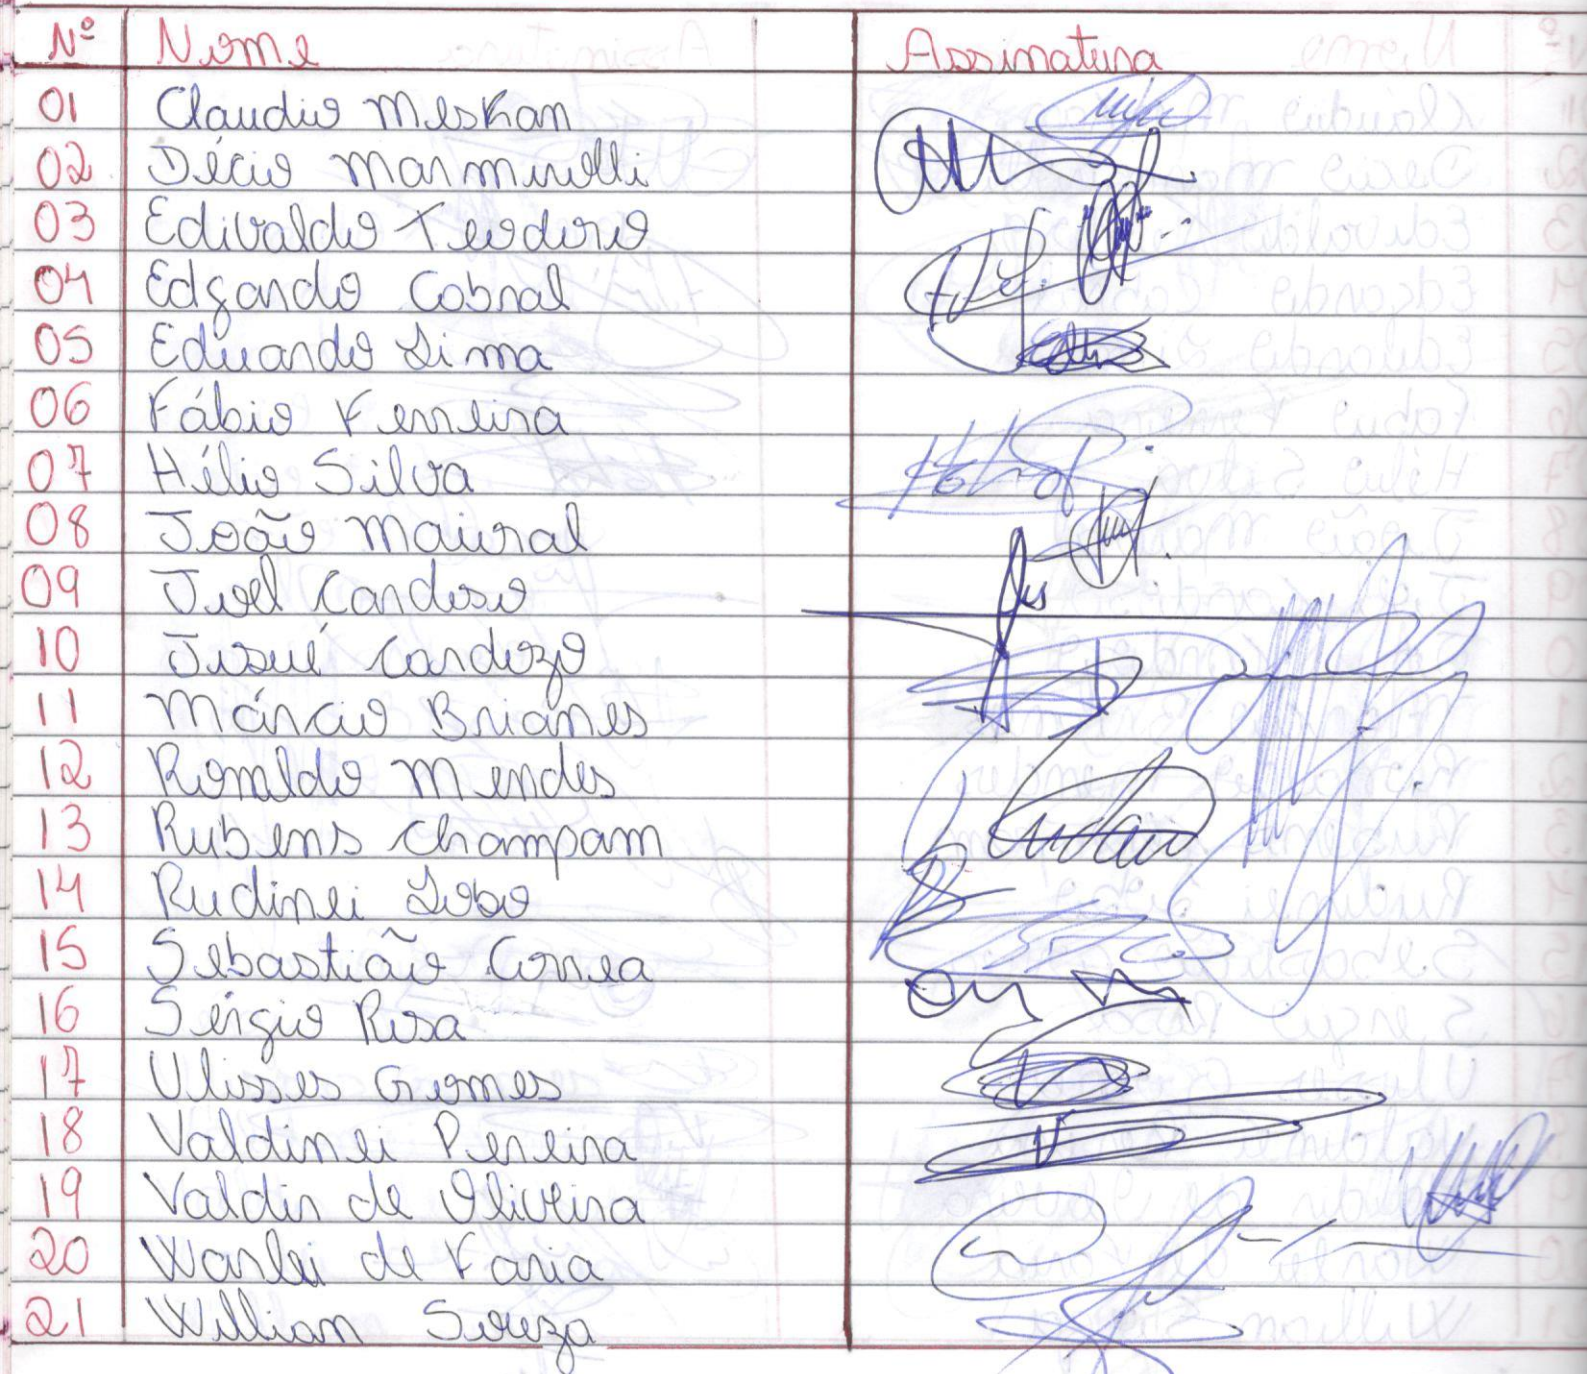 Nº Nome Assinatura
01 Claudio Meskan
02 Décio Marmirolli
03 Edivaldo Teodoro
04 Edgardo Cabral
05 Eduardo Lima
06 Fábio Ferreira
07 Hélio Silva
08 João Maioral
09 Joel Cardoso
10 Josué Cardozo
11 Márcio Brianes
12 Romildo Mendes
13 Rubens Champam
14 Rudinei Lobo
15 Sebastião Correa
16 Sérgio Rosa
17 Ulisses Gomes
18 Valdinei Pereira
19 Valdir de Oliveira
20 Warlei de Faria
21 Willian Souza